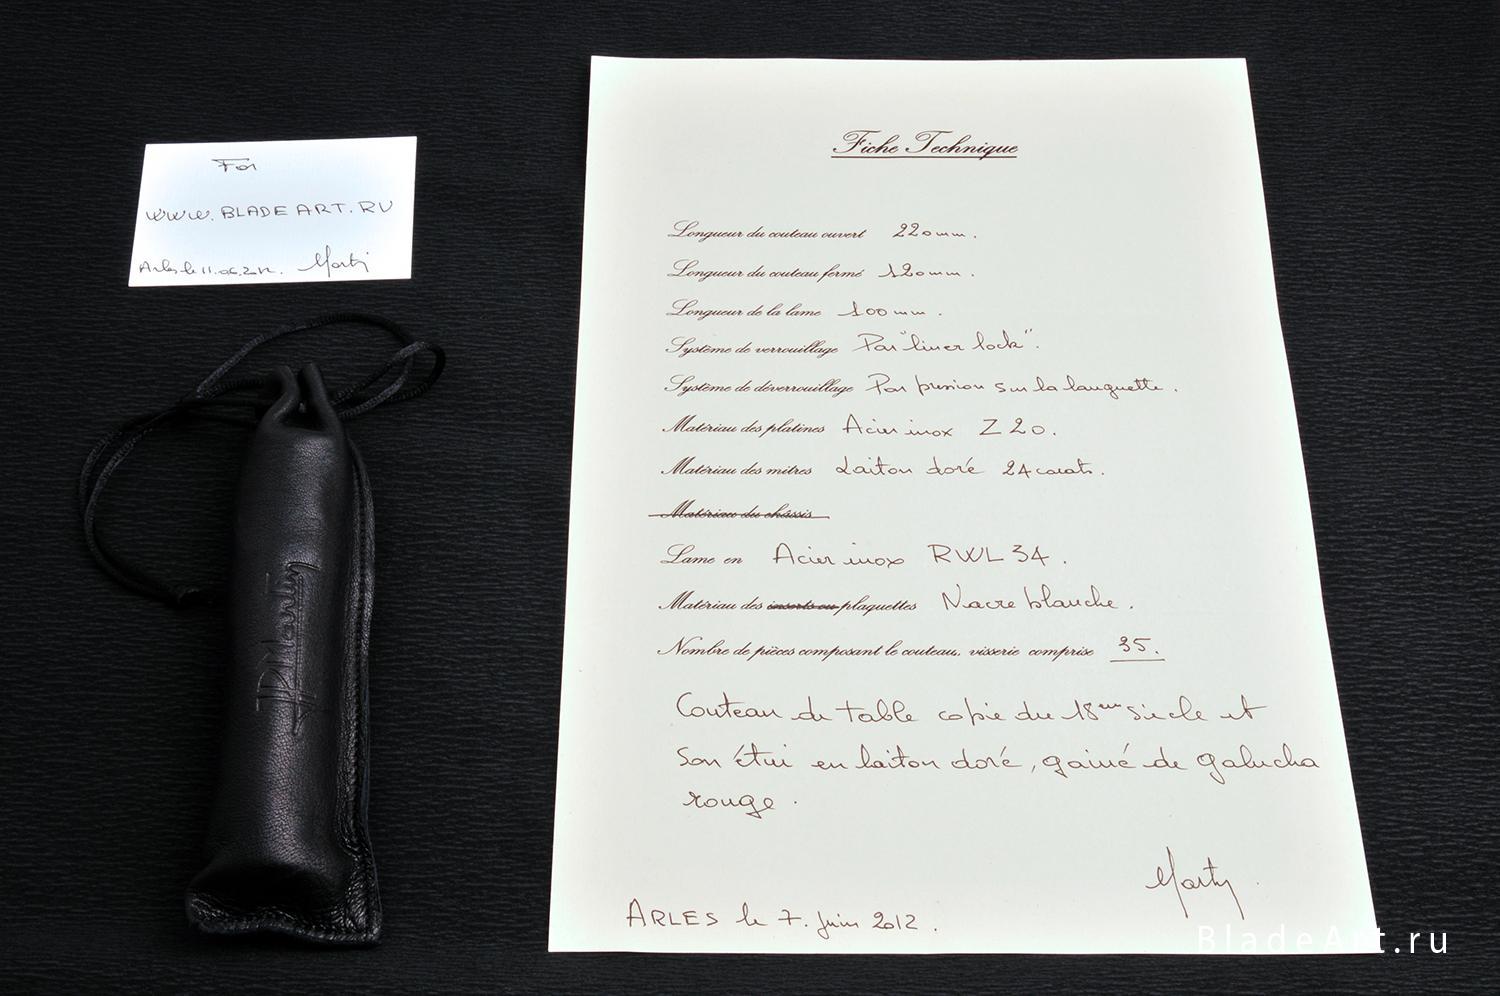 For
WWW.BLADEART.RU
Arles le 11.06.2012. Marty
JPMartin
Fiche Technique
Longueur du couteau ouvert 220mm.
Longueur du couteau fermé 120mm.
Longueur de la lame 100mm.
Système de verrouillage Par "liner lock".
Système de déverrouillage Par pression sur la languette.
Matériau des platines Acier inox Z20.
Matériau des mitres Laiton doré 24 carats.
Matériau du châssis
Lame en Acier inox RWL 34.
Matériau des inserts ou plaquettes Nacre blanche.
Nombre de pièces composant le couteau, visserie comprise 35.
Couteau de table copie du 18ème siècle et
son étui en laiton doré, gainé de galucha
rouge.
Marty
ARLES le 7. Juin 2012.
BladeArt.ru